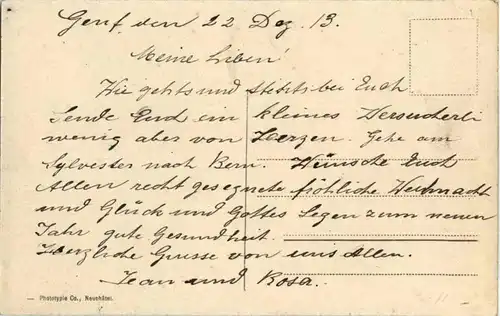 Genf, den 22 Dez. 13.
Meine Lieben!
Wie gehts und stehts bei Euch
Sende Euch ein kleines Versucherli
wenig aber von Herzen. Gehe am
Sylvester nach Bern. Wünsche Euch
Allen recht gesegnete fröhliche Weihnacht
und Glück und Gottes Segen zum neuen
Jahr gute Gesundheit.
Herzliche Grüsse von uns Allen.
Jean und Rosa.
— Phototypie Co., Neuchâtel.